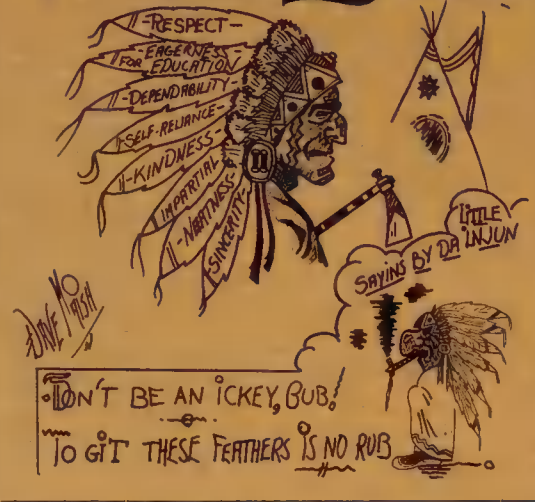 -RESPECT-
-EAGERNESS-
FOR EDUCATION
-DEPENDABILITY-
-SELF-RELIANCE-
-KINDNESS-
IMPARTIAL
-NEATNESS-
-SINCERITY-
LITTLE
SAYINS BY DA INJUN
DAVE
DON'T BE AN ICKEY, BUB!
TO GIT THESE FEATHERS IS NO RUB